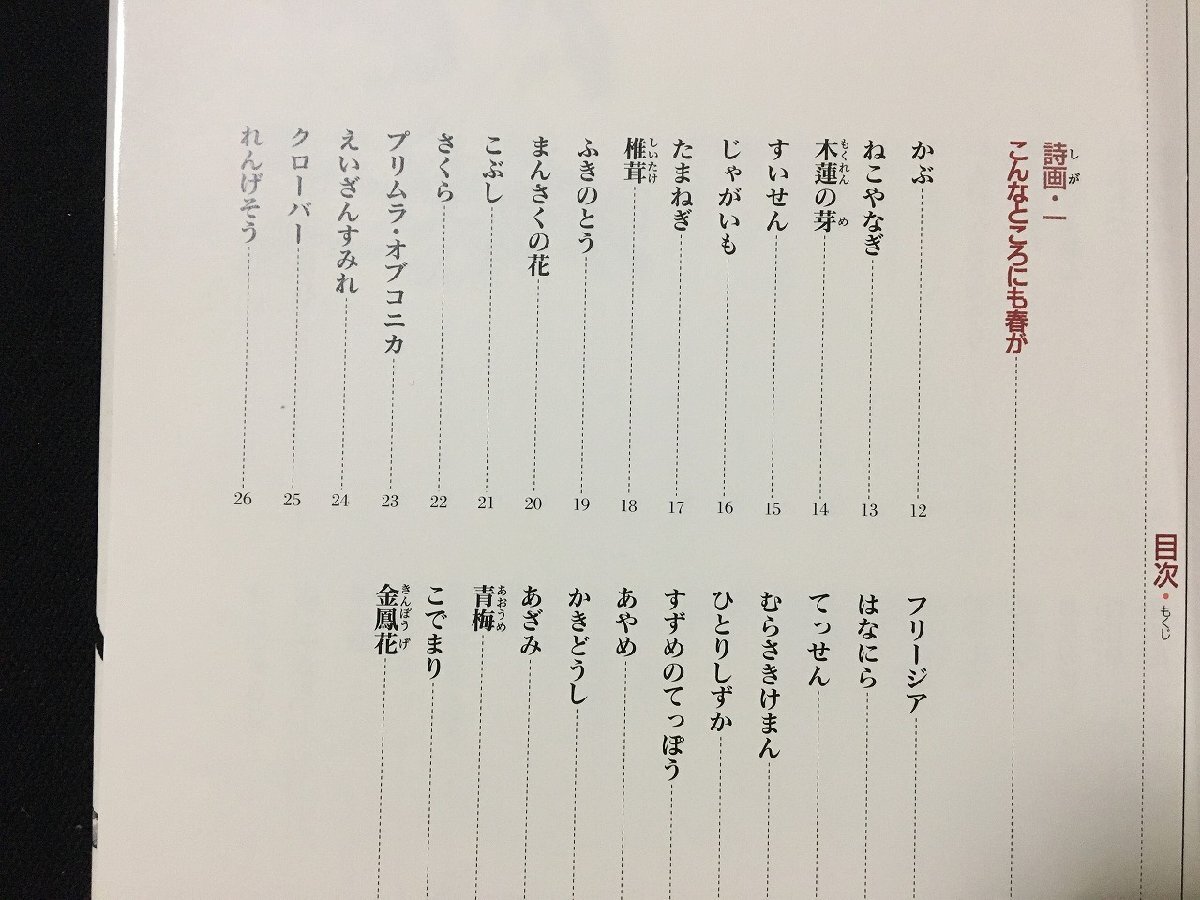 目次・もくじ
詩画・一
しが
こんなところにも春が
かぶ 12
ねこやなぎ 13
木蓮の芽 14
もくれん め
すいせん 15
じゃがいも 16
たまねぎ 17
椎茸 18
しいたけ
ふきのとう 19
まんさくの花 20
こぶし 21
さくら 22
プリムラ・オブコニカ 23
えいざんすみれ 24
クローバー 25
れんげそう 26
フリージア
はなにら
てっせん
むらさきけまん
ひとりしずか
すずめのてっぽう
あやめ
かきどうし
あざみ
青梅
あおうめ
こでまり
金鳳花
きんぽうげ